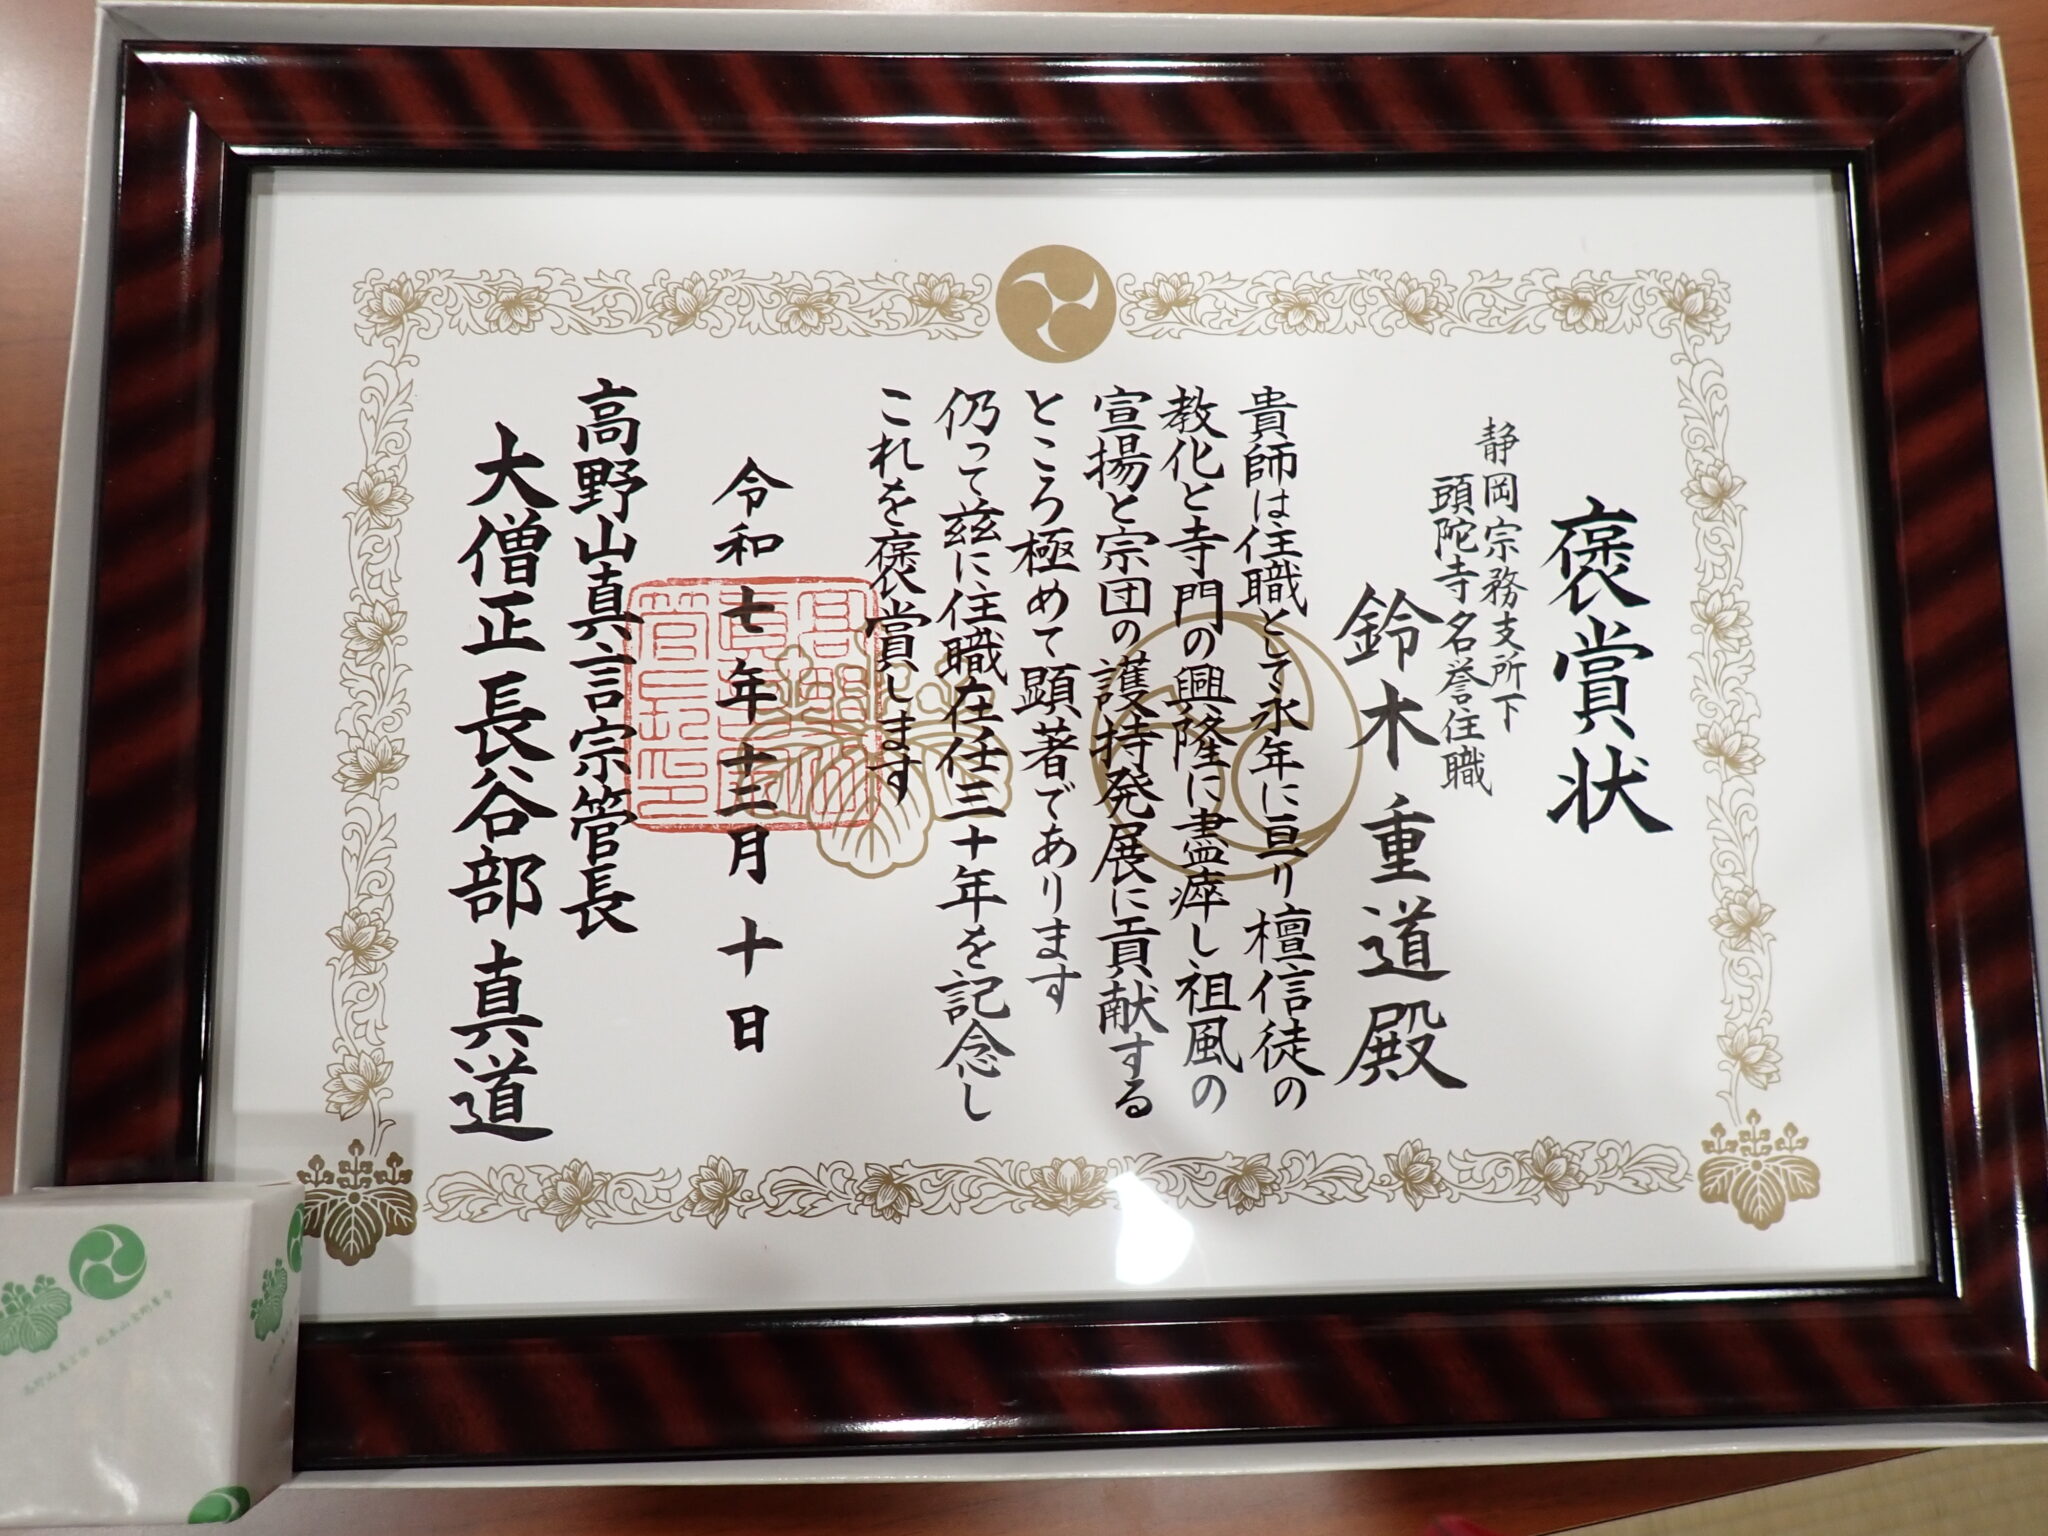 褒賞状
静岡宗務支所下
頭陀寺名誉住職
鈴木重道殿
貴師は住職として永年に亘り檀信徒の
教化と寺門の興隆に盡瘁し祖風の
宣揚と宗団の護持発展に貢献する
ところ極めて顕著であります
仍って茲に住職在任三十年を記念し
これを褒賞します
令和七年十二月十日
高野山真言宗管長
大僧正長谷部真道
高野山真言宗 総本山金剛峯寺